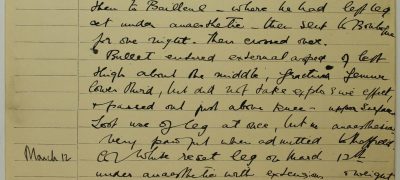 then to Bailleul - where he had left leg
set under anaesthetic - then sent to Boulogne
for one night. Then crossed over.
Bullet entered external aspect of left
thigh about the middle, fractured femur
lower third, but did not take explosive effect,
& passed out just above knee - upper surface
Lost use of leg at once, but no anaesthesia
very poor put when admitted to Hospital.
March 12
Dr White reset leg on March 12th
under anaesthetic with extension & weight